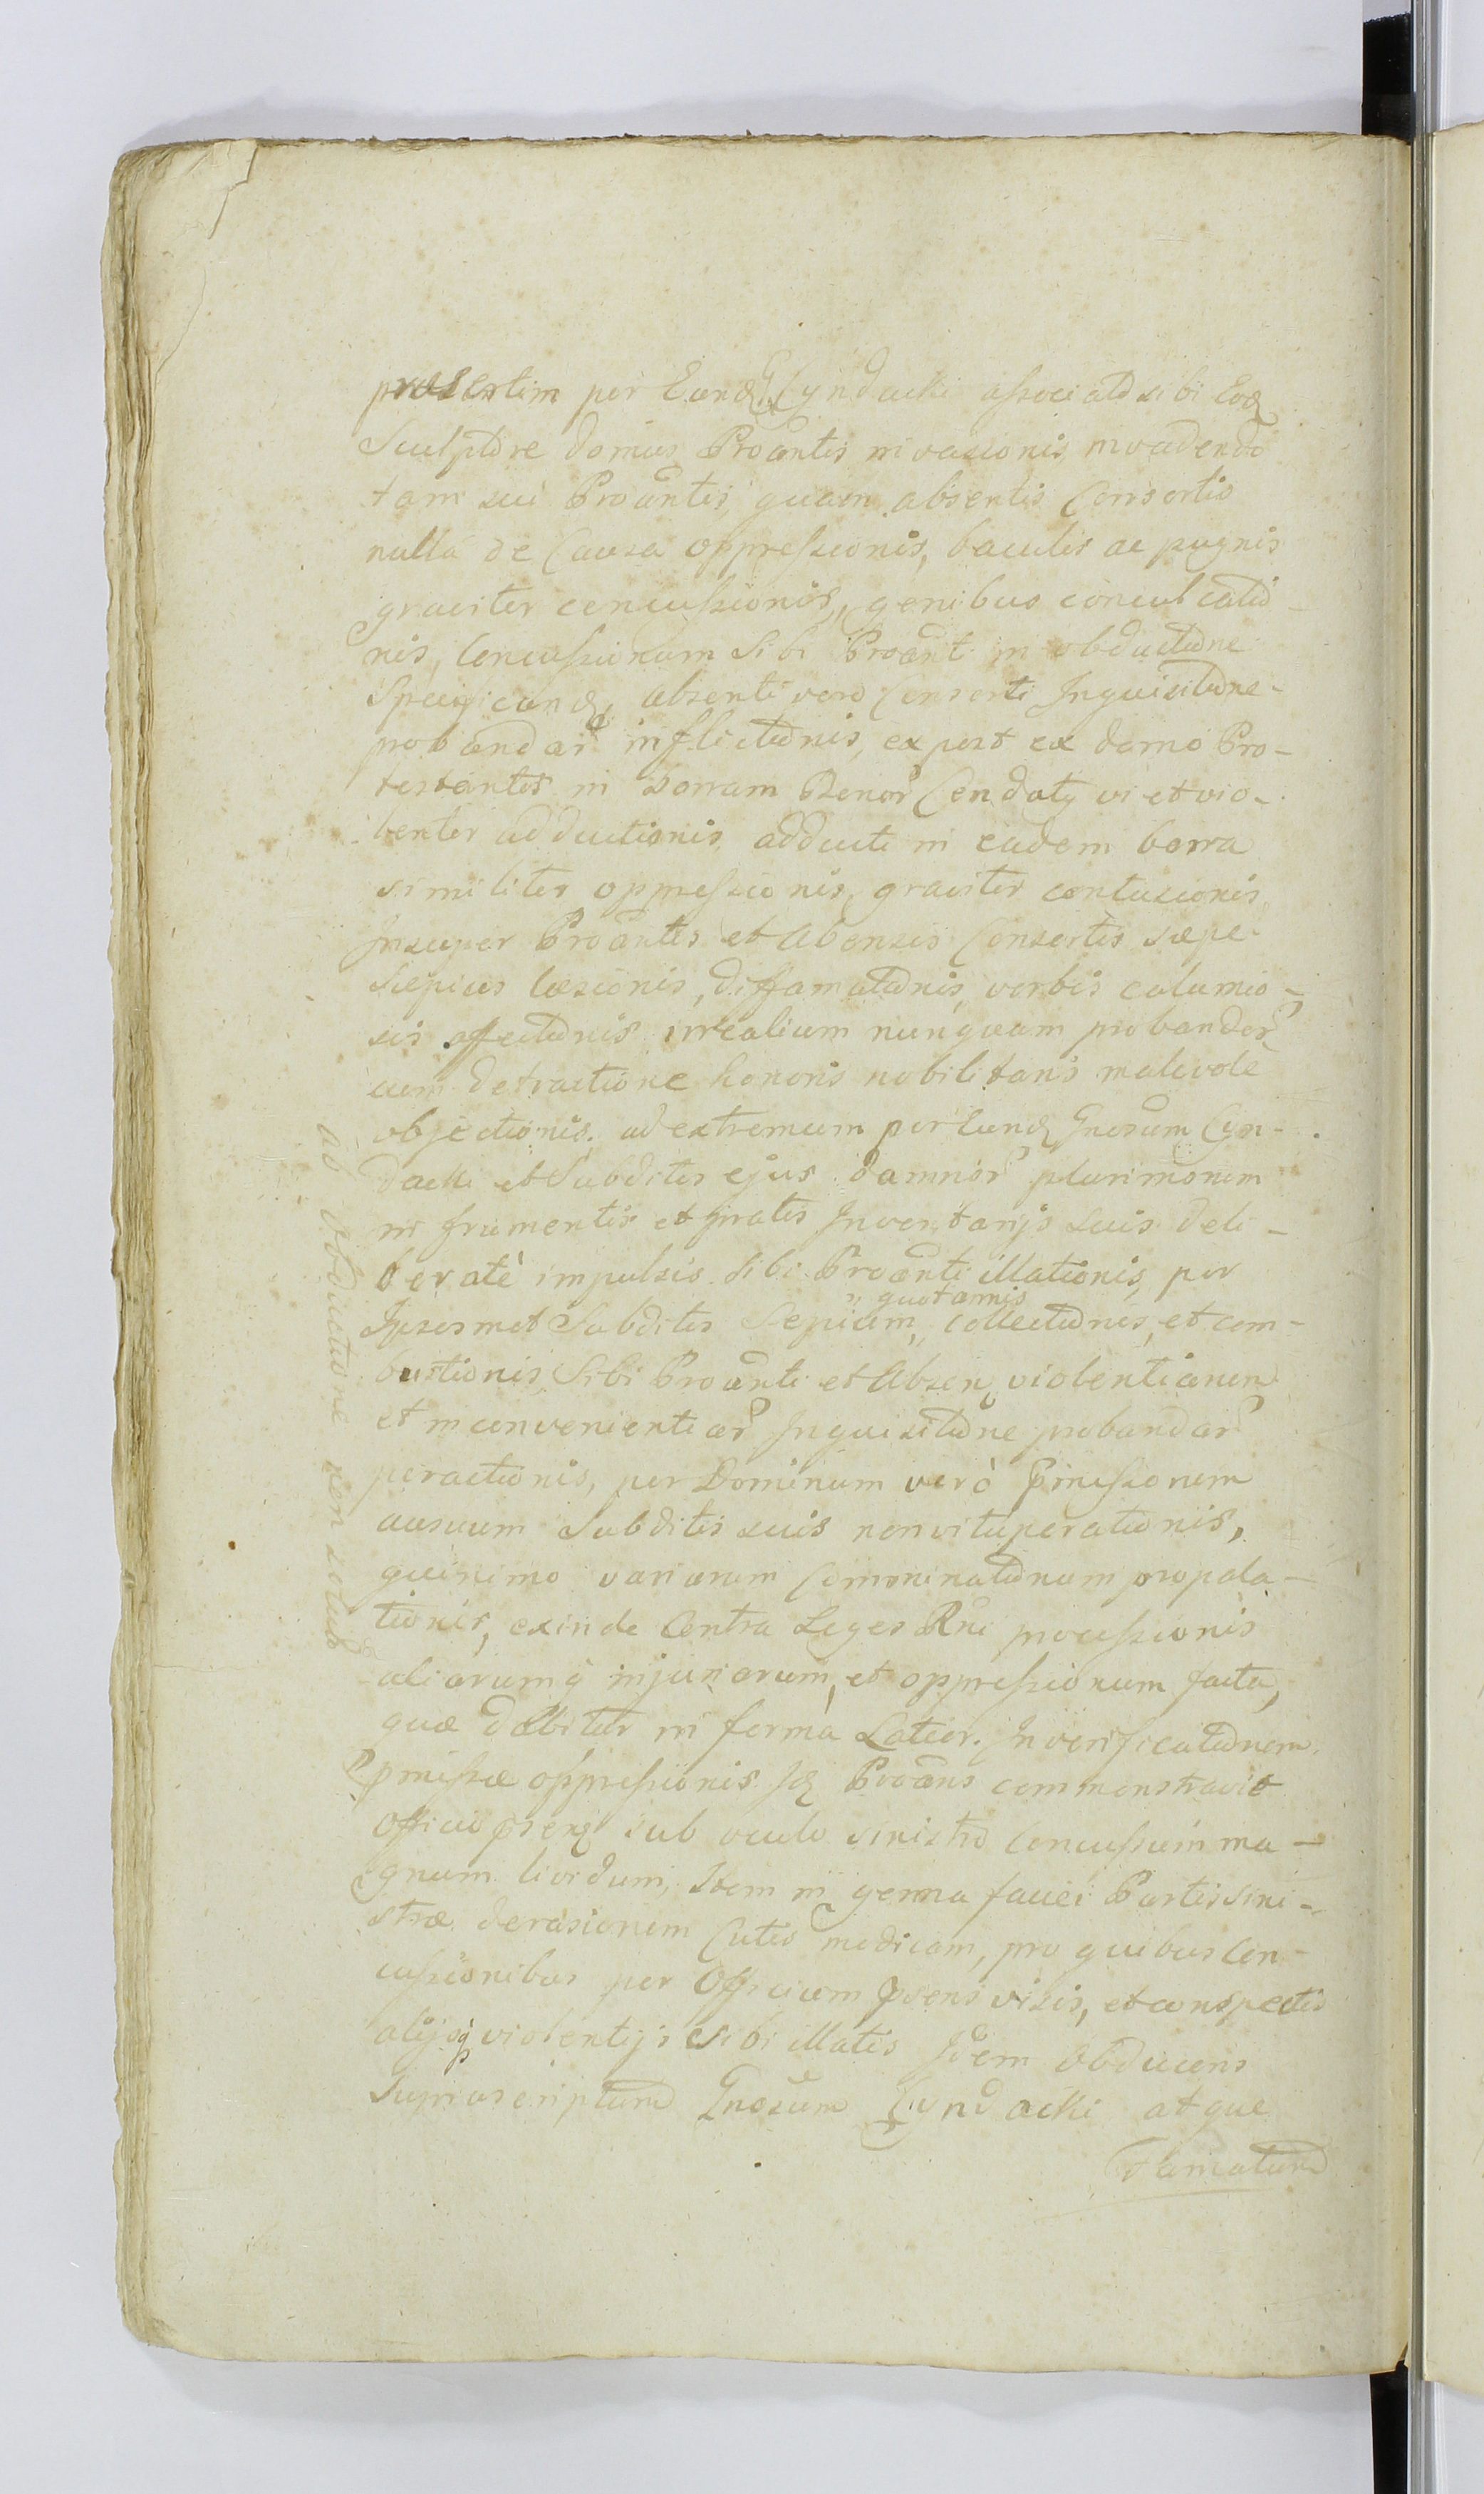 præsertim per Eund G. Cyndacki associatô sibi Eod
Sculptore domus Pro͠antis invasionis invadendo
tam sui Pro͠antis, quam absentis Consortis
nulla de Causa oppressionis, baculis ac pugnis
graviter concussionis, genibus conculcatio-
nis, Concussionum Sibi Pro͠anti in obductione
Specificand, absenti vero Consorti Inquisitione
probandar inflictionis, expost ex domo Pro-
testantis in borram Bonor vi et vio-
lenter adductionis, adducti in eadem borra
similiter oppressionis, graviter contusionis,
Insuper Pro͠antis et Absensis Consortis sæpe
Sæpius læsionis, diffamationis, verbis calumnio-
sis affectionis irrealium nunquam probandor
cum detractione honoris nobilitaris malevole
objectionis. ad extremum per Eund Gnosum Cyn-
dacki et Subditos ejus damnor plurimorum
in frumentis et pratis Inventarijs suis deli-
beratè impulsis Sibi Pro͠anti illationis, per
quotannis
Ipsosmet Subditos Sepium, collectionis, et com-
bustionis, Sibi Pro͠anti et Absen violentiarum
et inconvenientiar Inquisitione probandar
peractionis, per Dominum verò p͠missorum
ausuum Subditis suis nonvituperationis,
quinimo variarum Comminationum propala-
tionis, exinde Contra Leges Rni processionis
aliarumq injuriarum, et oppressionum facta,
quæ dabitur in forma Latior. In verificationem
p͠missæ oppressionis Id Pro͠ans commonstravit
Officio p͠senti sub oculo sinistro Concussum ma-
gnum lividum, Item in genna faciei Partis sini-
stræ derasionem Cutis modicam, pro quibus Con-
cussionibus per Officium p͠sens visis, et conspectis
alijsq violentijs sibi illatis Idem Obducens
Suprascriptum Gnosum Cyndacki atque
Famatum
ab Obductione non solut